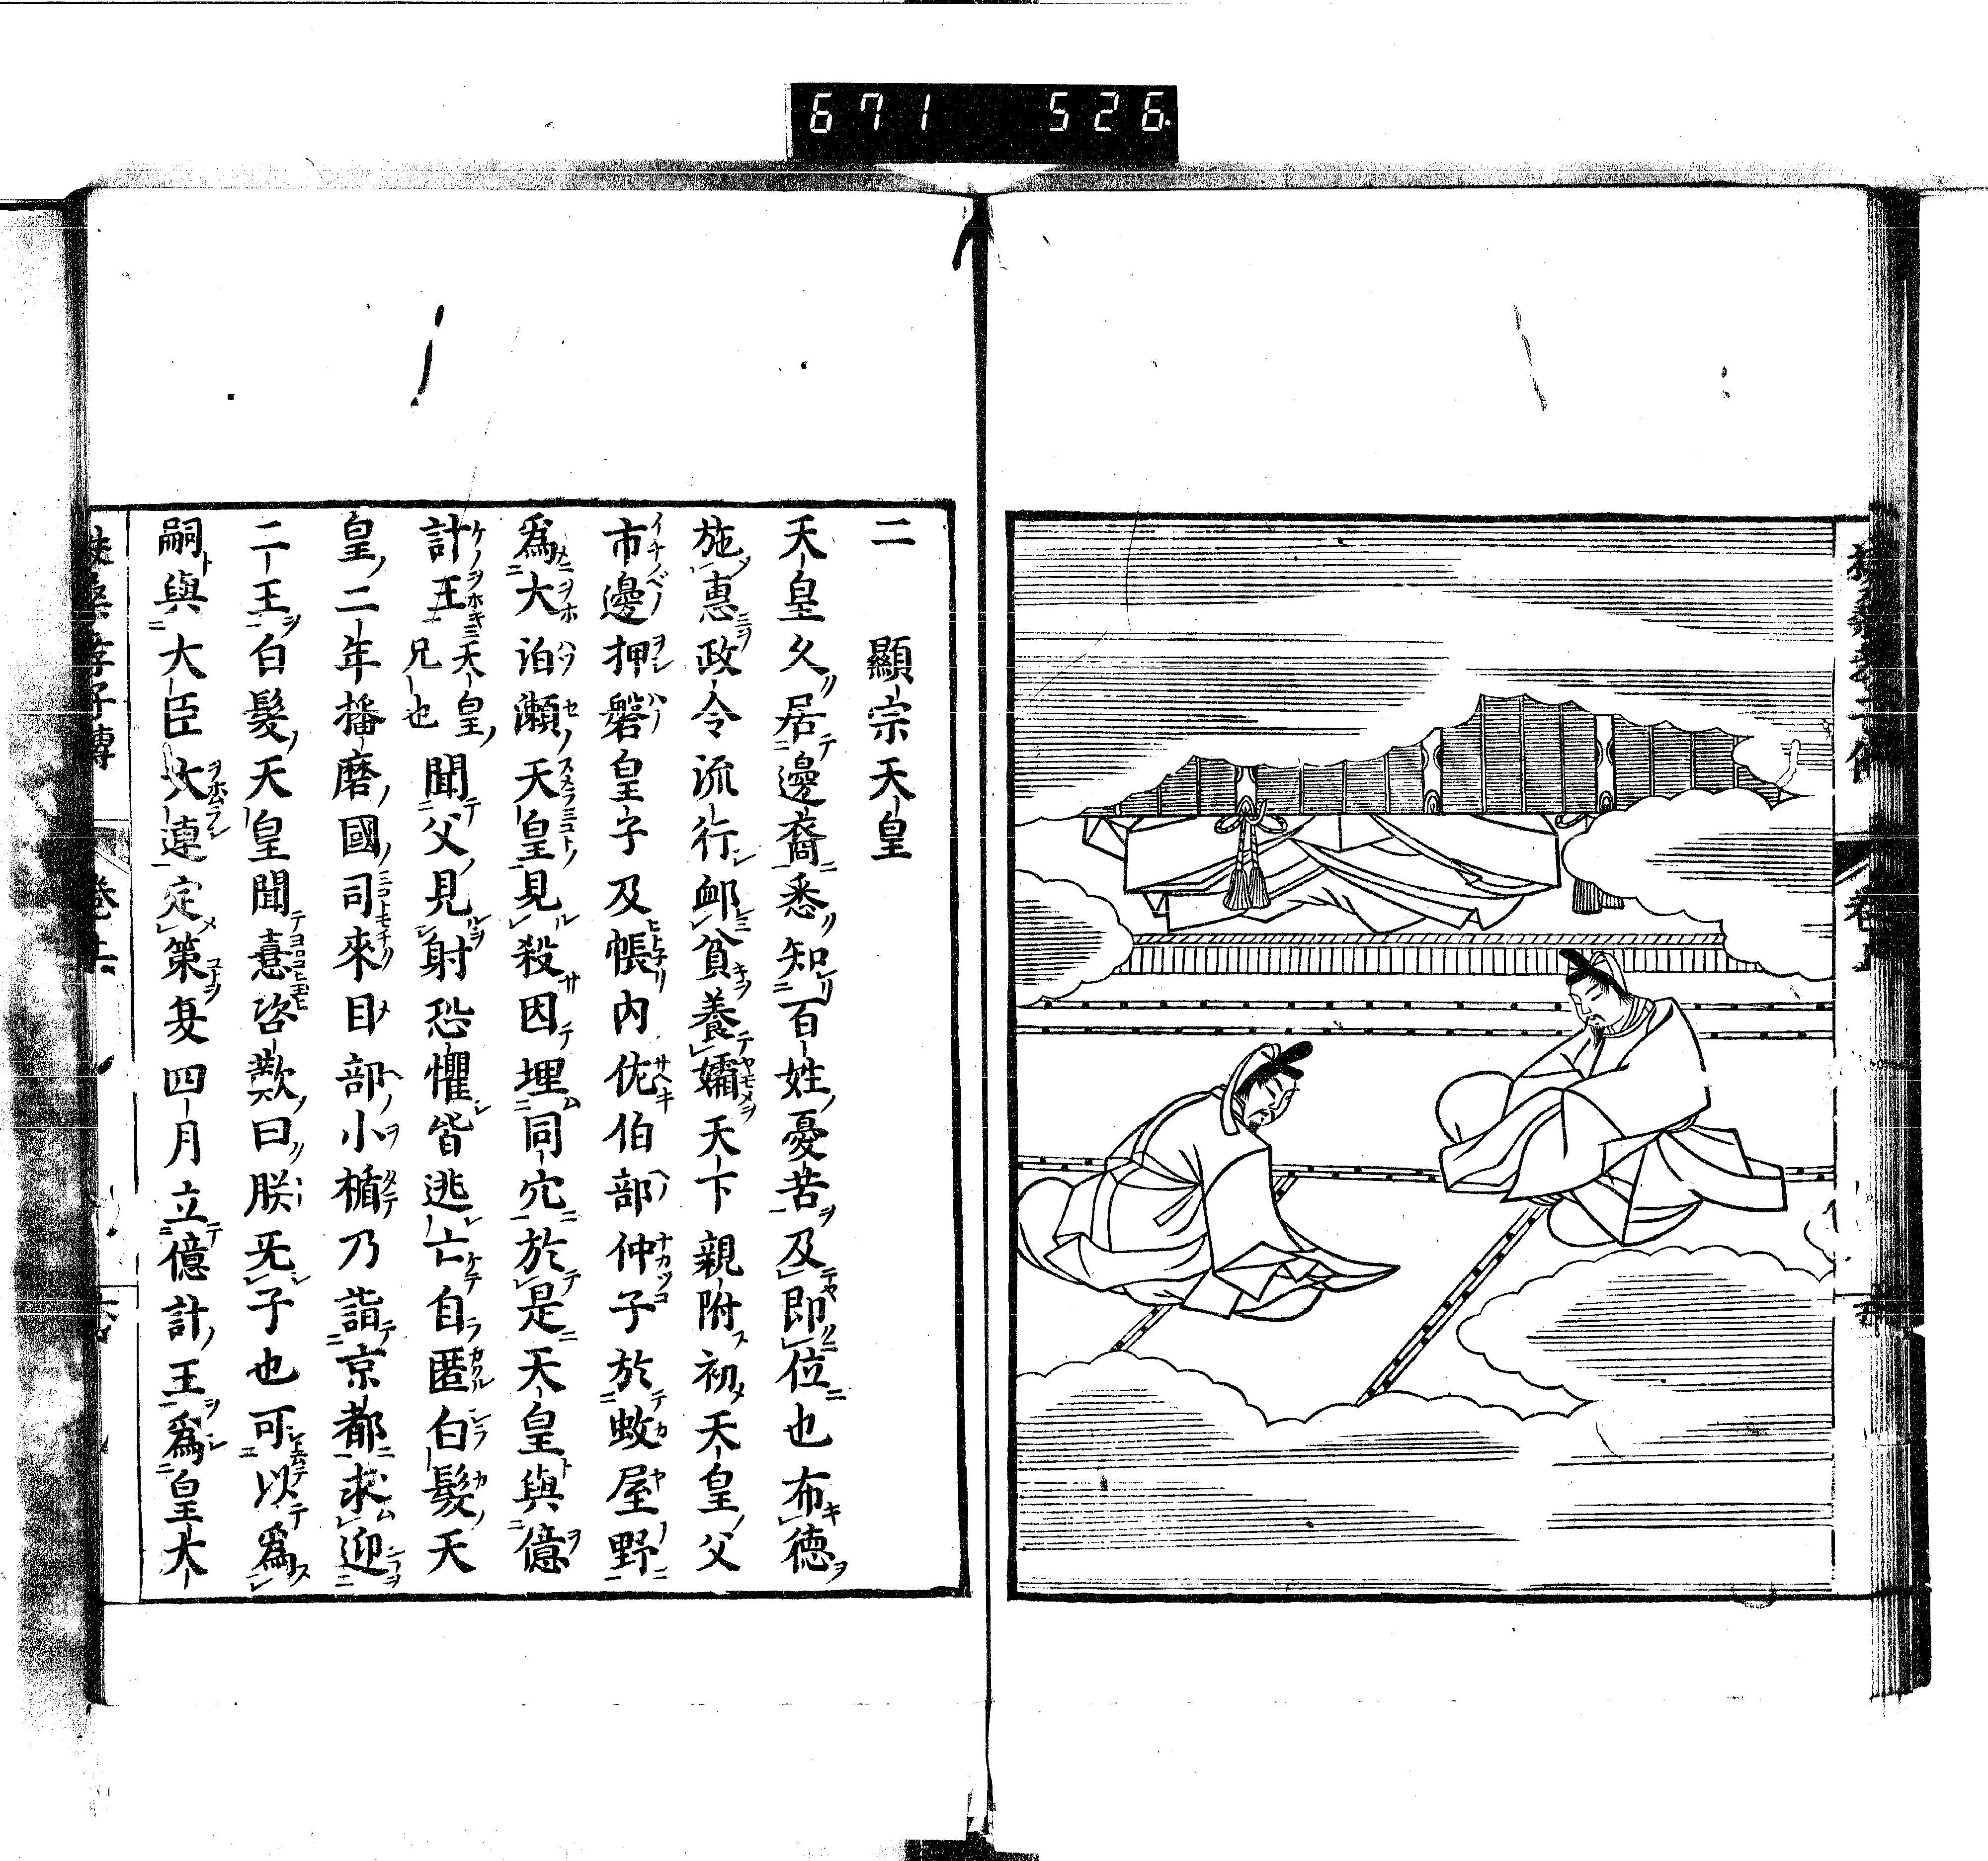 671 526
二 顯宗天皇
天皇久居邊裔悉知百姓憂苦及即位也布德
施惠政令流行卹貧養孀天下親附初天皇父
市邊押磐皇子及帳內佐伯部仲子於蚊屋野
爲大泊瀨天皇見殺因埋同穴於是天皇與億
計王天皇兄也聞父見射恐懼皆逃亡自匿白髮天
皇二年播磨國司來目部小楯乃詣京都求迎
二王白髮天皇聞憙咨歎曰朕无子也可以爲
嗣與大臣大連定策夏四月立億計王爲皇太